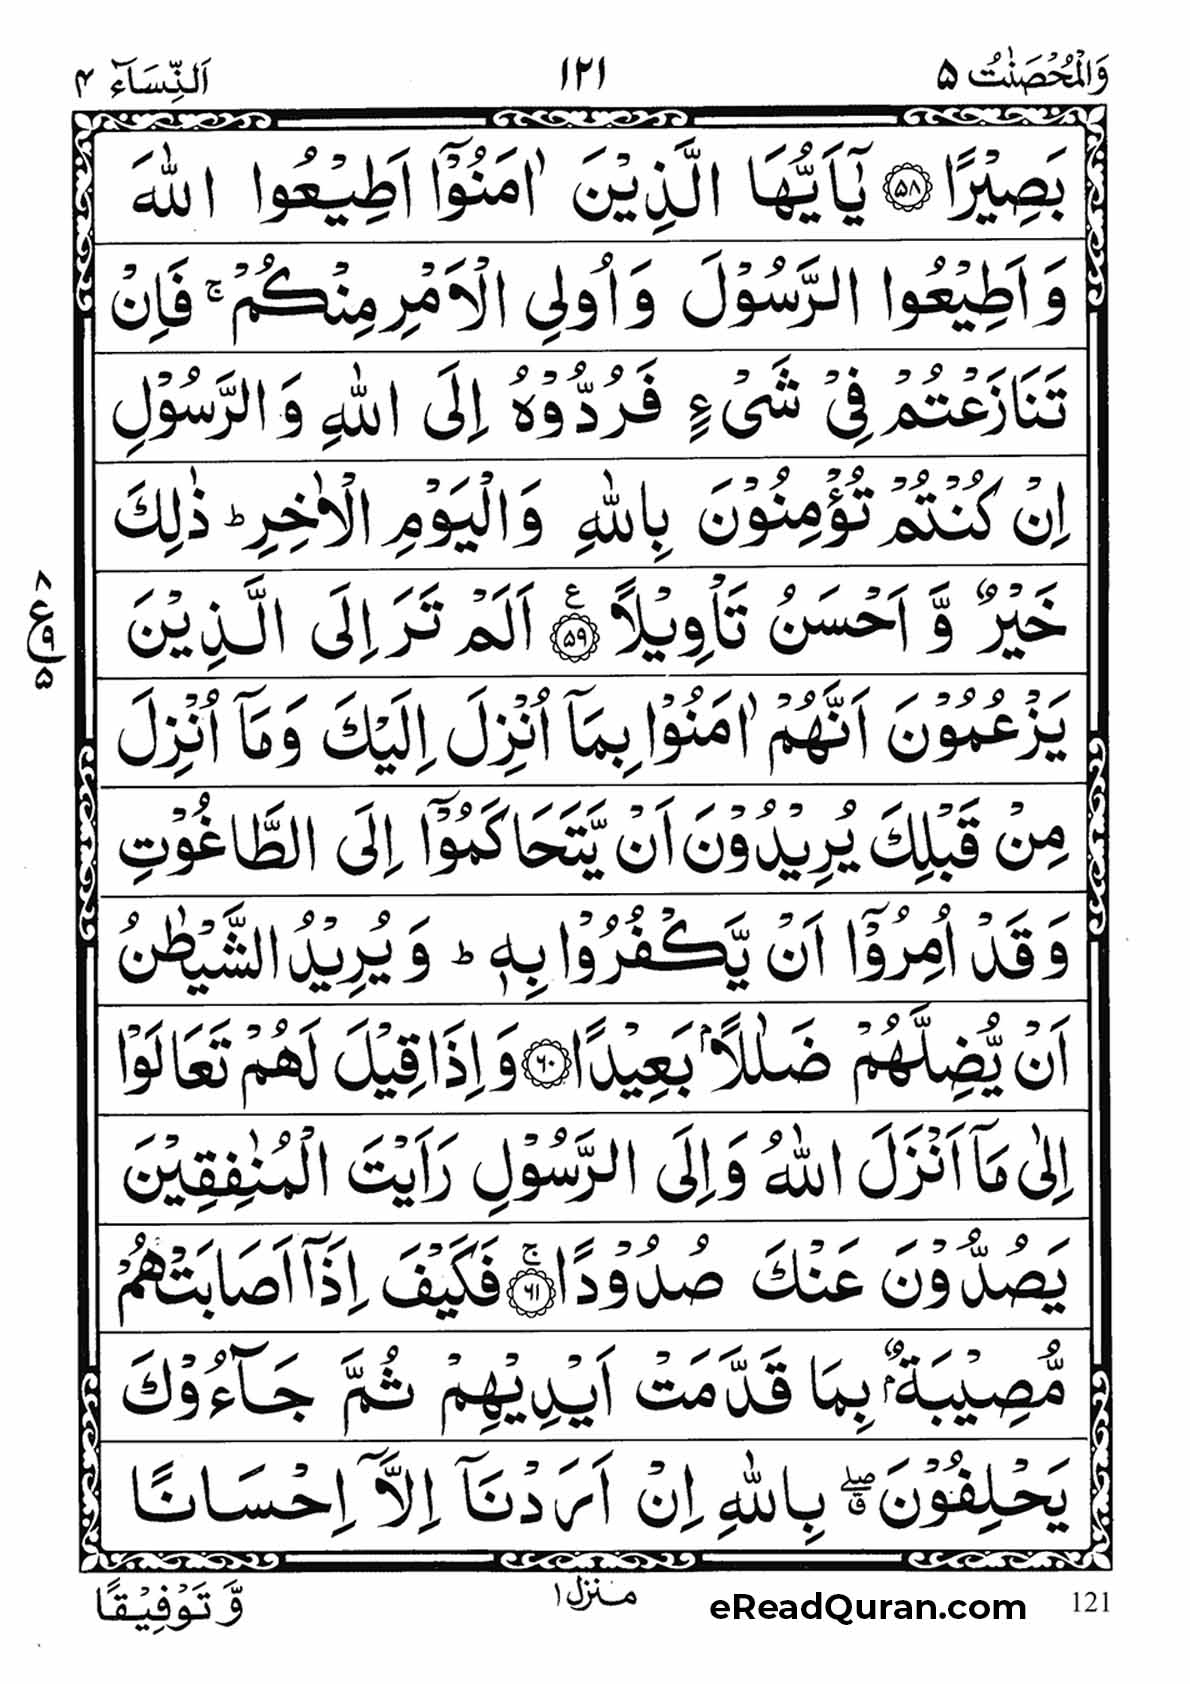 وَالْمُحْصَنٰتُ ۵ ١٢١ اَلنِّسَآء ۴
بَصِيْرًا ﴿۵۸﴾ يٰٓاَيُّهَا الَّذِيْنَ اٰمَنُوْٓا اَطِيْعُوا اللّٰهَ
وَاَطِيْعُوا الرَّسُوْلَ وَاُولِي الْاَمْرِ مِنْكُمْ ۚ فَاِنْ
تَنَازَعْتُمْ فِيْ شَيْءٍ فَرُدُّوْهُ اِلَى اللّٰهِ وَالرَّسُوْلِ
اِنْ كُنْتُمْ تُؤْمِنُوْنَ بِاللّٰهِ وَالْيَوْمِ الْاٰخِرِ ؕ ذٰلِكَ
خَيْرٌ وَّ اَحْسَنُ تَاْوِيْلًا ﴿۵۹﴾ ع اَلَمْ تَرَ اِلَى الَّذِيْنَ
۸ ع ۹ ۵
يَزْعُمُوْنَ اَنَّهُمْ اٰمَنُوْا بِمَآ اُنْزِلَ اِلَيْكَ وَمَآ اُنْزِلَ
مِنْ قَبْلِكَ يُرِيْدُوْنَ اَنْ يَّتَحَاكَمُوْٓا اِلَى الطَّاغُوْتِ
وَقَدْ اُمِرُوْٓا اَنْ يَّكْفُرُوْا بِهٖ ؕ وَيُرِيْدُ الشَّيْطٰنُ
اَنْ يُّضِلَّهُمْ ضَلٰلًاۢ بَعِيْدًا ﴿۶۰﴾ وَاِذَا قِيْلَ لَهُمْ تَعَالَوْا
اِلٰى مَآ اَنْزَلَ اللّٰهُ وَاِلَى الرَّسُوْلِ رَاَيْتَ الْمُنٰفِقِيْنَ
يَصُدُّوْنَ عَنْكَ صُدُوْدًا ﴿۶۱﴾ ۚ فَكَيْفَ اِذَآ اَصَابَتْهُمْ
مُّصِيْبَةٌۢ بِمَا قَدَّمَتْ اَيْدِيْهِمْ ثُمَّ جَآءُوْكَ
يَحْلِفُوْنَ ۖۗ بِاللّٰهِ اِنْ اَرَدْنَآ اِلَّآ اِحْسَانًا
وَّتَوْفِيْقًا منزل ١ eReadQuran.com 121